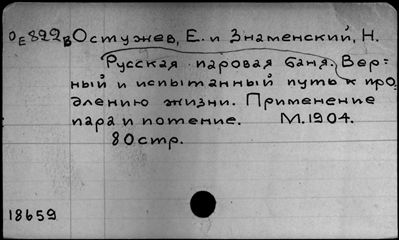 OE822B Остужев, Е. и Знаменский, Н.
Русская паровая баня. Вер=
ный и испытанный путь к про=
длению жизни. Применение
пара и потение. М. 1904.
80 стр.
18659